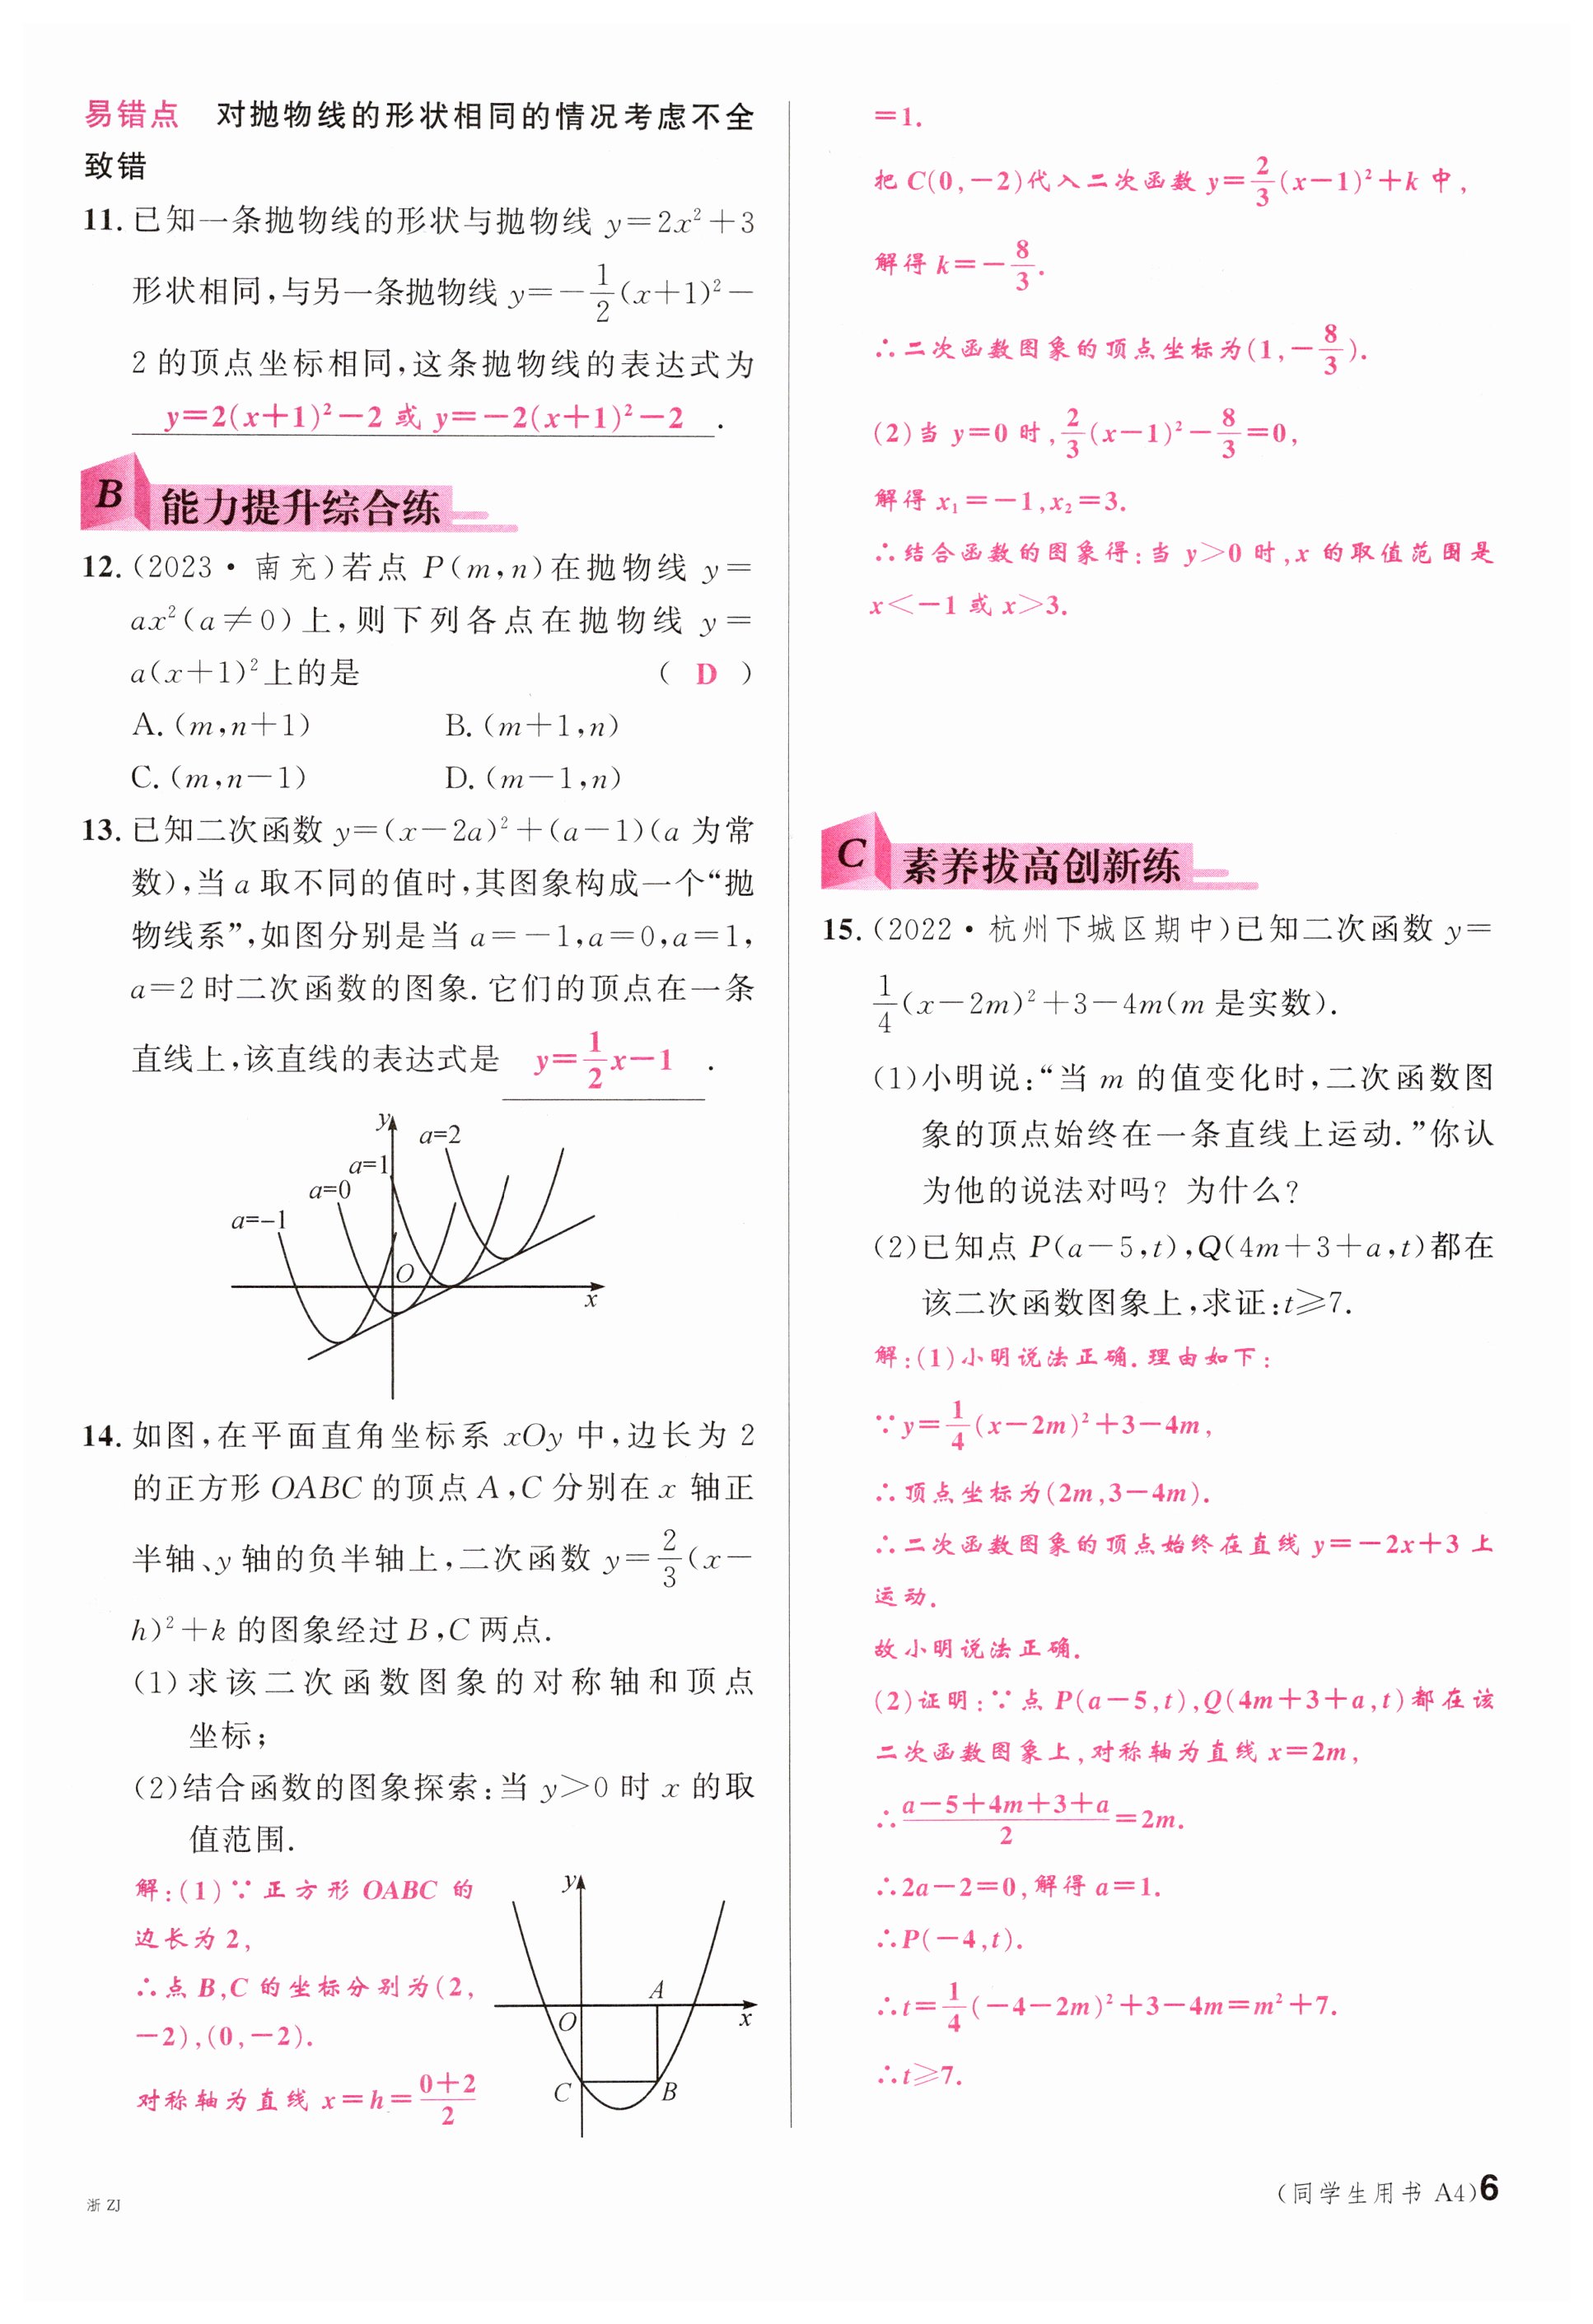 易错点 对抛物线的形状相同的情况考虑不全
致错
11. 已知一条抛物线的形状与抛物线 y=2x²+3
形状相同,与另一条抛物线 y=-1/2(x+1)²-
2 的顶点坐标相同,这条抛物线的表达式为
y=2(x+1)²-2 或 y=-2(x+1)²-2 .
B 能力提升综合练
12. (2023·南充)若点 P(m,n)在抛物线 y=
ax²(a≠0)上,则下列各点在抛物线 y=
a(x+1)²上的是 ( D )
A. (m,n+1) B. (m+1,n)
C. (m,n-1) D. (m-1,n)
13. 已知二次函数 y=(x-2a)²+(a-1)(a 为常
数),当 a 取不同的值时,其图象构成一个“抛
物线系”,如图分别是当 a=-1,a=0,a=1,
a=2 时二次函数的图象. 它们的顶点在一条
直线上,该直线的表达式是 y=1/2x-1 .
y
a=2
a=1
a=0
a=-1
O
x
14. 如图,在平面直角坐标系 xOy 中,边长为 2
的正方形 OABC 的顶点 A,C 分别在 x 轴正
半轴、y 轴的负半轴上,二次函数 y=2/3(x-
h)²+k 的图象经过 B,C 两点.
(1)求该二次函数图象的对称轴和顶点
坐标;
(2)结合函数的图象探索:当 y>0 时 x 的取
值范围.
解:(1)∵正方形 OABC 的
边长为 2,
∴点 B,C 的坐标分别为(2,
-2),(0,-2).
对称轴为直线 x=h=(0+2)/2
y
A
O
x
C
B
=1.
把 C(0,-2)代入二次函数 y=2/3(x-1)²+k 中,
解得 k=-8/3.
∴二次函数图象的顶点坐标为(1,-8/3).
(2)当 y=0 时,2/3(x-1)²-8/3=0,
解得 x₁=-1,x₂=3.
∴结合函数的图象得:当 y>0 时,x 的取值范围是
x<-1 或 x>3.
C 素养拔高创新练
15. (2022·杭州下城区期中)已知二次函数 y=
1/4(x-2m)²+3-4m(m 是实数).
(1)小明说:“当 m 的值变化时,二次函数图
象的顶点始终在一条直线上运动.”你认
为他的说法对吗? 为什么?
(2)已知点 P(a-5,t),Q(4m+3+a,t)都在
该二次函数图象上,求证:t≥7.
解:(1)小明说法正确. 理由如下:
∵y=1/4(x-2m)²+3-4m,
∴顶点坐标为(2m,3-4m).
∴二次函数图象的顶点始终在直线 y=-2x+3 上
运动.
故小明说法正确.
(2)证明:∵点 P(a-5,t),Q(4m+3+a,t)都在该
二次函数图象上,对称轴为直线 x=2m,
∴(a-5+4m+3+a)/2=2m.
∴2a-2=0,解得 a=1.
∴P(-4,t).
∴t=1/4(-4-2m)²+3-4m=m²+7.
∴t≥7.
浙 ZJ
(同学生用书 A4)6